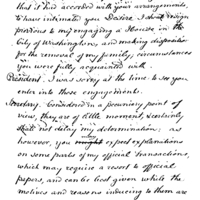 that it had accorded with your arrangements,
to have intimated you Desire I should resign
previous to my engaging a House in the
City of Washington, and making disposition
for the removal of my family, circumstances
you were fully acquainted with.
President. I was sorry at the time to see you
enter into those engagements.
Secretary. Considered in a pecuniary point of
view, they are of little moment, & certainly
shall not delay my determination; as
however, you expect explanations
on some parts of my official transactions,
which may require a resort to official
papers, and can be best given while the
motives and reasons inducing to them are